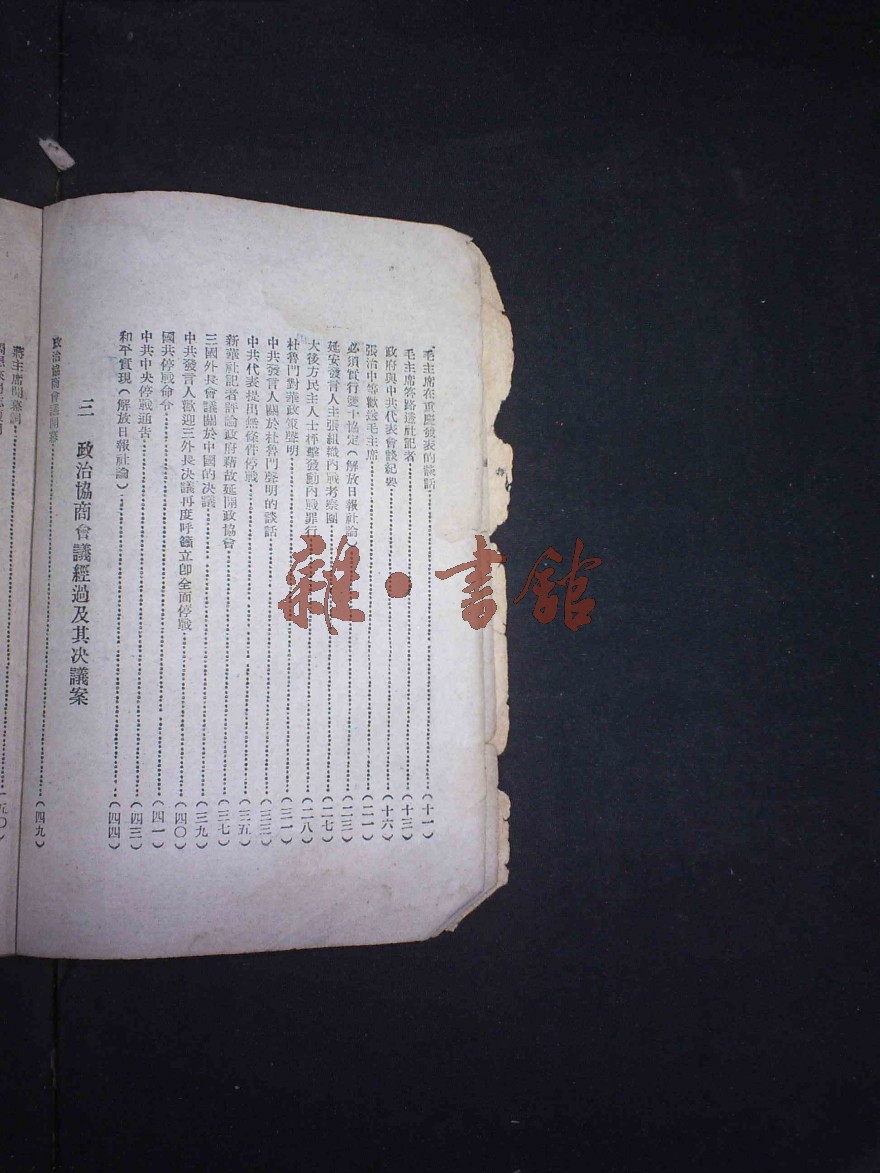 毛主席在重慶發表的談話(十一)
毛主席答路透社記者(十三)
政府與中共代表會談紀要(十六)
張治中等歡送毛主席(二一)
必須實行雙十協定(解放日報社論)(二三)
延安發言人主張組織內戰考察團(二七)
大後方民主人士抨擊發動內戰罪行(二八)
杜魯門對華政策聲明(三一)
中共發言人關於杜魯門聲明的談話(三三)
中共代表提出無條件停戰(三五)
新華社記者評論政府藉故延開政協會(三七)
三國外長會議關於中國的决議(三九)
中共發言人歡迎三外長決議再度呼籲立卽全面停戰(四〇)
國共停戰命令(四一)
中共中央停戰通告(四三)
和平實現(解放日報社論)(四四)
三 政治協商會議經過及其决議案
政治協商會議開幕(四九)
蔣主席開幕詞(五〇)
雜·書館